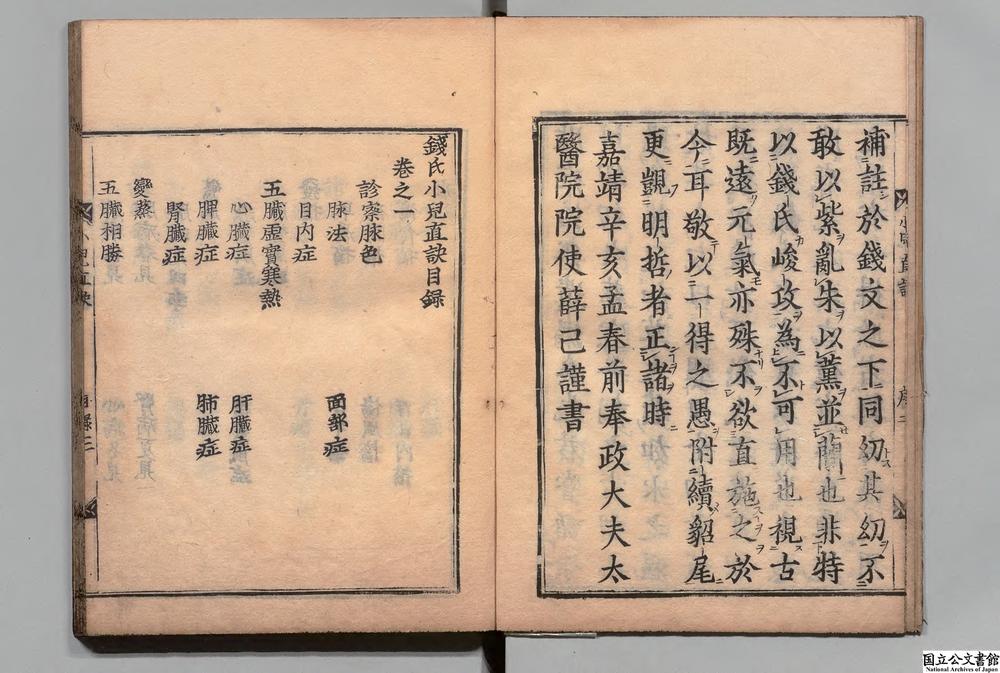 補註於錢文之下同幼其幼不
敢以紫亂朱以薰並蕑也非特
以錢氏峻攻為不可用也視古
既遠元氣亦殊不欲直施之於
今耳敬以一得之愚附續貂尾
更覬明哲者正諸時
嘉靖辛亥孟春前奉政大夫太
醫院院使薛己謹書
錢氏小兒直訣目錄
卷之一
診察脉色
脉法 面部症
目内症
五臟虛實寒熱
心臟症 肝臟症
脾臟症 肺臟症
腎臟症
變蒸
五臟相勝
国立公文書館
National Archives of Japan